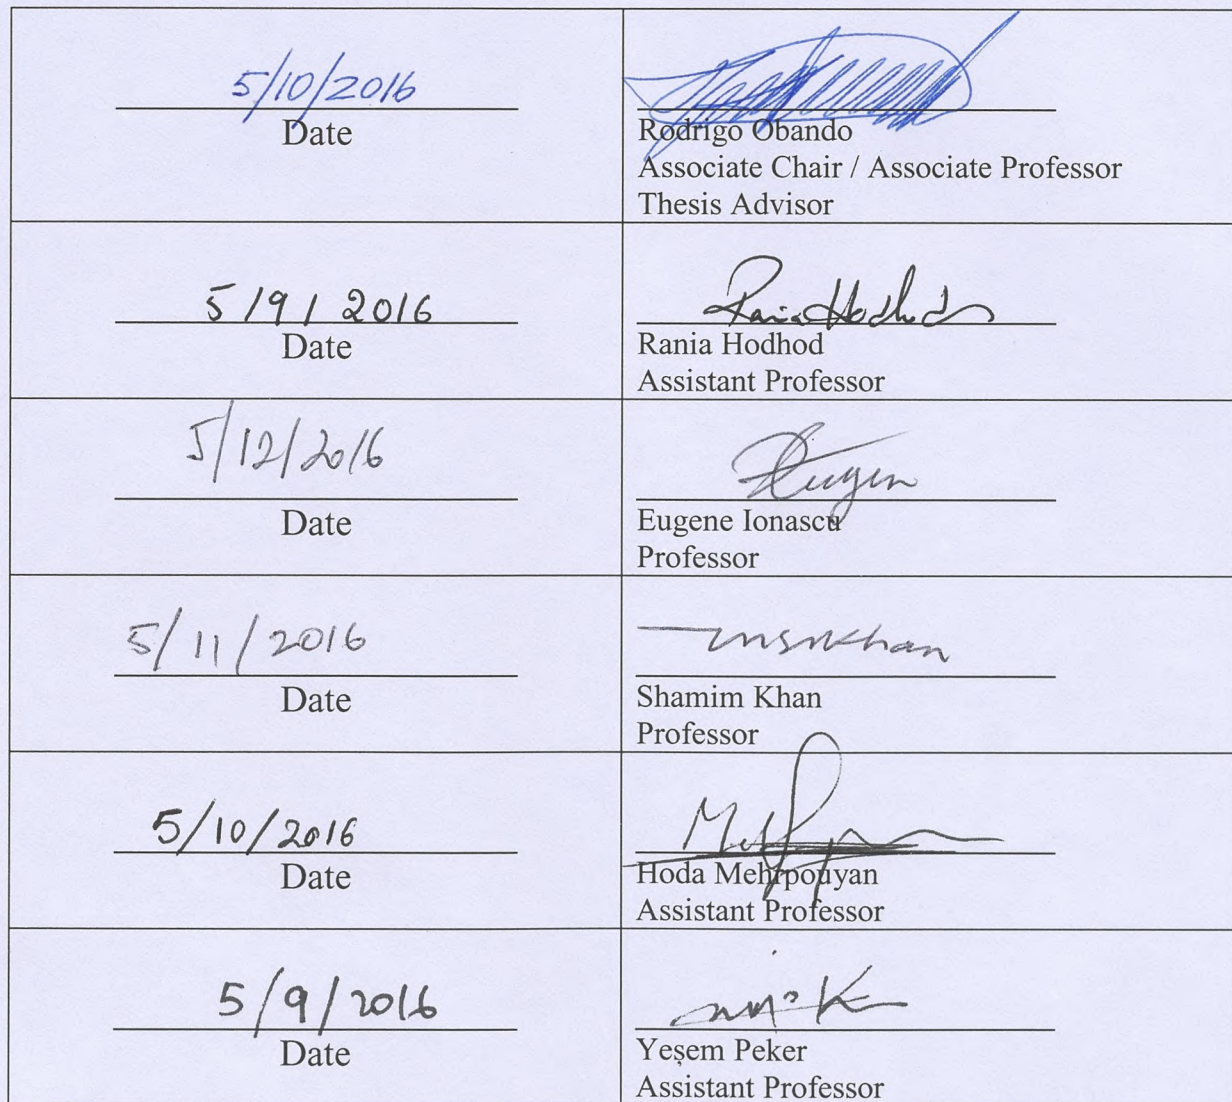 5/10/2016
Date
Rodrigo Obando
Associate Chair / Associate Professor
Thesis Advisor
5/9/2016
Date
Rania Hodhod
Rania Hodhod
Assistant Professor
5/12/2016
Date
Eugen
Eugene Ionascu
Professor
5/11/2016
Date
Khan
Shamim Khan
Professor
5/10/2016
Date
Hoda Mehrpouyan
Assistant Professor
5/9/2016
Date
Yeşem Peker
Assistant Professor